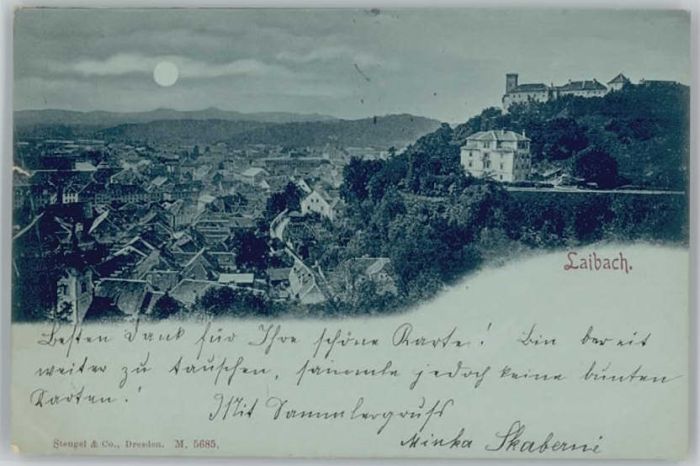 Laibach.
Besten Dank für Ihre schöne Karte! Bin bereit
weiter zu tauschen, sammle jedoch keine bunten
Karten!
Mit Sammlergruss
Minka Skaberni
Stengel & Co., Dresden. M. 5685.